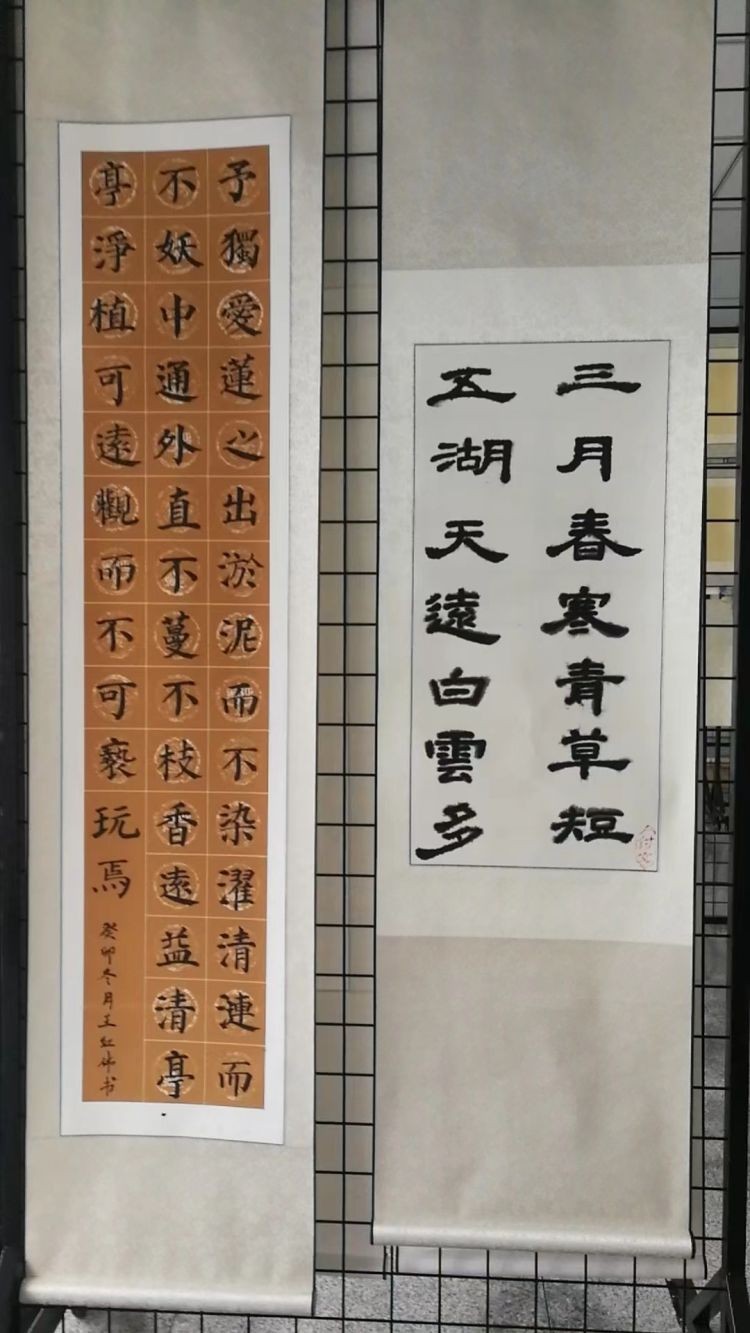 三月春寒青草短
五湖天遠白雲多
予獨愛蓮之出淤泥而不染濯清漣而
不妖中通外直不蔓不枝香遠益清亭
亭淨植可遠觀而不可褻玩焉
癸卯冬月王红书